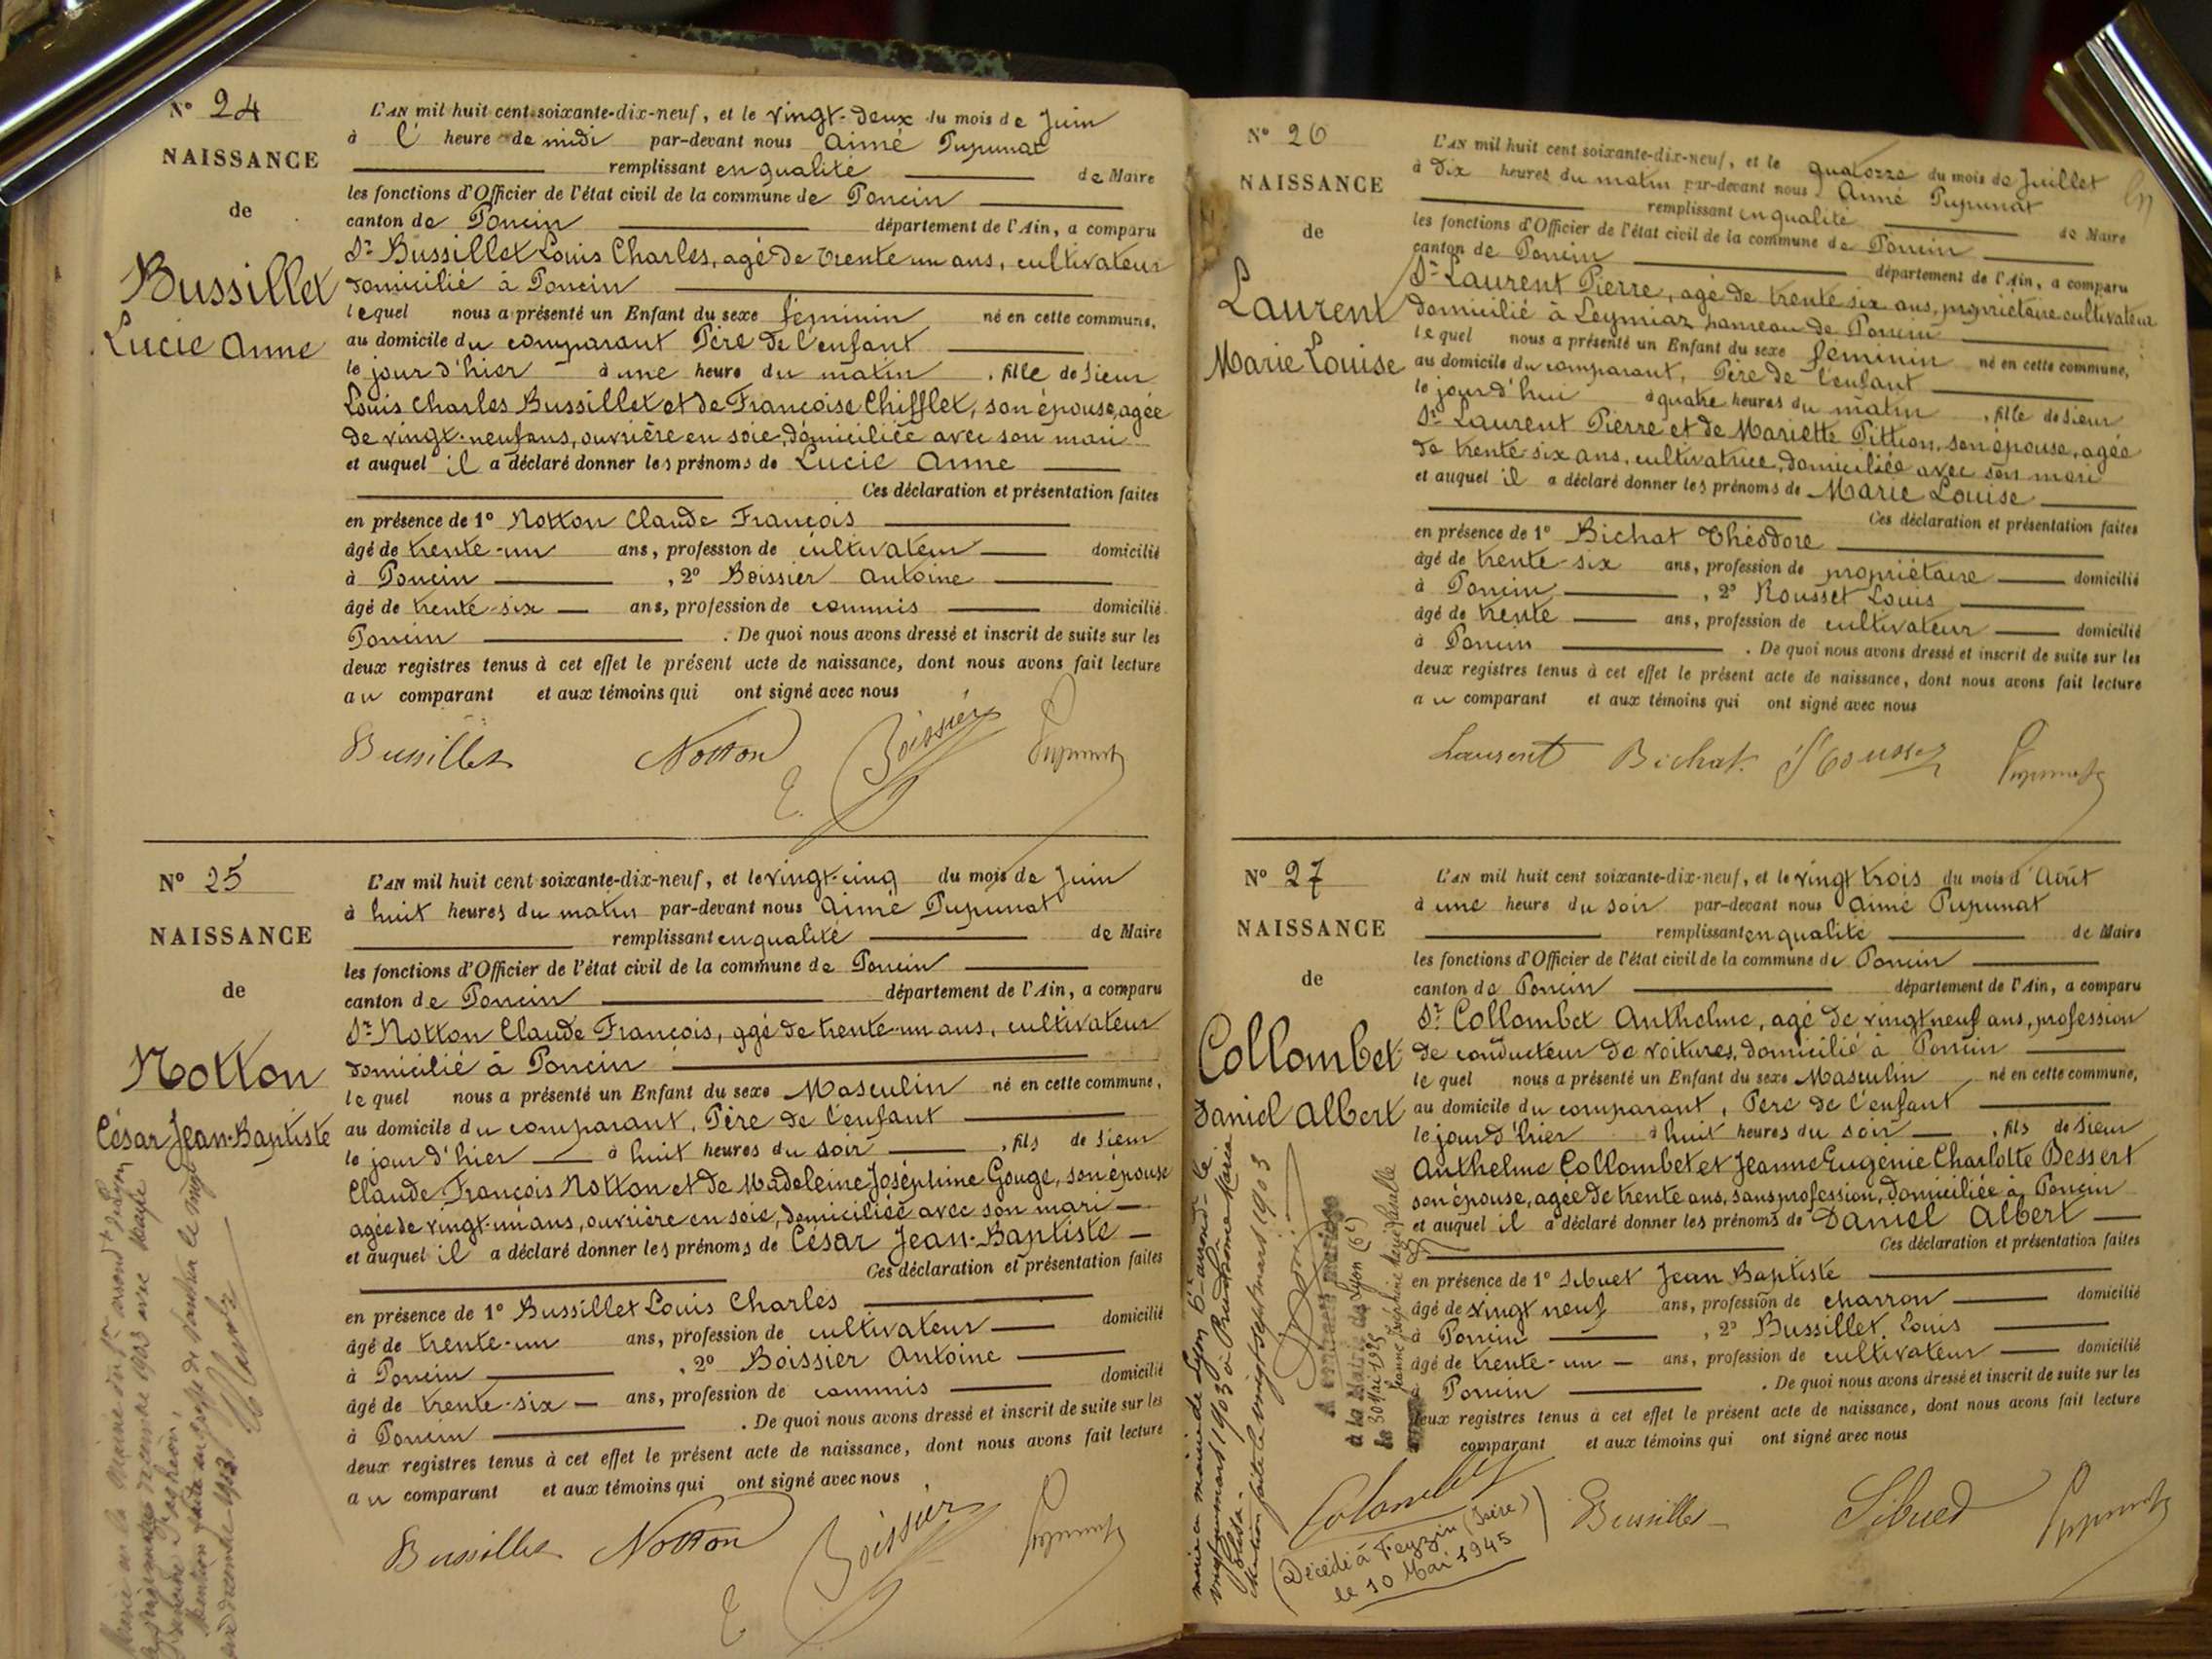 N° 24
NAISSANCE
de
Bussillet
Lucie Anne
L'AN mil huit cent soixante-dix-neuf, et le vingt-deux du mois de Juin
à l' heure de midi par-devant nous Aimé Pupunat
remplissant en qualité de Maire
les fonctions d'Officier de l'état civil de la commune de Poncin
canton de Poncin département de l'Ain, a comparu
Sr Bussillet Louis Charles, agé de trente un ans, cultivateur
domicilié à Poncin
lequel nous a présenté un Enfant du sexe féminin né en cette commune,
au domicile du comparant Père de l'enfant
le jour d'hier à une heure du matin, fille de Sieur
Louis Charles Bussillet et de Françoise Chifflet, son épouse, agée
de vingt-neuf ans, ouvrière en soie, domiciliée avec son mari
et auquel il a déclaré donner les prénoms de Lucie Anne
Ces déclaration et présentation faites
en présence de 1° Notton Claude François
âgé de trente-un ans, profession de cultivateur domicilié
à Poncin, 2° Boissier Antoine
âgé de trente-six ans, profession de commis domicilié
Poncin. De quoi nous avons dressé et inscrit de suite sur les
deux registres tenus à cet effet le présent acte de naissance, dont nous avons fait lecture
au comparant et aux témoins qui ont signé avec nous
Bussillet Notton Boissier Pupunat
N° 25
NAISSANCE
de
Notton
César Jean-Baptiste
L'AN mil huit cent soixante-dix-neuf, et le vingt-cinq du mois de Juin
à huit heures du matin par-devant nous Aimé Pupunat
remplissant en qualité de Maire
les fonctions d'Officier de l'état civil de la commune de Poncin
canton de Poncin département de l'Ain, a comparu
Sr Notton Claude François, agé de trente-un ans, cultivateur
domicilié à Poncin
lequel nous a présenté un Enfant du sexe Masculin né en cette commune,
au domicile du comparant, Père de l'enfant
le jour d'hier à huit heures du soir, fils de Sieur
Claude François Notton et de Madeleine Joséphine Gouge, son épouse
agée de vingt-un ans, ouvrière en soie, domiciliée avec son mari
et auquel il a déclaré donner les prénoms de César Jean-Baptiste
Ces déclaration et présentation faites
en présence de 1° Bussillet Louis Charles
âgé de trente-un ans, profession de cultivateur domicilié
à Poncin, 2° Boissier Antoine
âgé de trente-six ans, profession de commis domicilié
à Poncin. De quoi nous avons dressé et inscrit de suite sur les
deux registres tenus à cet effet le présent acte de naissance, dont nous avons fait lecture
au comparant et aux témoins qui ont signé avec nous
Bussillet Notton Boissier Pupunat
Marié en la Mairie du
décembre 1903 avec
Mention faite au greffe de Nantua le
décembre 1903
N° 26
NAISSANCE
de
Laurent
Marie Louise
L'AN mil huit cent soixante-dix-neuf, et le quatorze du mois de Juillet
à dix heures du matin par-devant nous Aimé Pupunat
remplissant en qualité de Maire
les fonctions d'Officier de l'état civil de la commune de Poncin
canton de Poncin département de l'Ain, a comparu
Sr Laurent Pierre, agé de trente six ans, propriétaire cultivateur
domicilié à Leymiaz hameau de Poncin
lequel nous a présenté un Enfant du sexe féminin né en cette commune,
au domicile du comparant, Père de l'enfant
le jour d'hui à quatre heures du matin, fille de Sieur
Sr Laurent Pierre et de Mariette Pittion, son épouse, agée
de trente six ans, cultivatrice, domiciliée avec son mari
et auquel il a déclaré donner les prénoms de Marie Louise
Ces déclaration et présentation faites
en présence de 1° Bichat Théodore
âgé de trente six ans, profession de propriétaire domicilié
à Poncin, 2° Rousset Louis
âgé de trente ans, profession de cultivateur domicilié
à Poncin. De quoi nous avons dressé et inscrit de suite sur les
deux registres tenus à cet effet le présent acte de naissance, dont nous avons fait lecture
au comparant et aux témoins qui ont signé avec nous
Laurent Bichat Rousset Pupunat
N° 27
NAISSANCE
de
Collombet
Daniel Albert
L'AN mil huit cent soixante-dix-neuf, et le vingt trois du mois d'Août
à une heure du soir par-devant nous Aimé Pupunat
remplissant en qualité de Maire
les fonctions d'Officier de l'état civil de la commune de Poncin
canton de Poncin département de l'Ain, a comparu
Sr Collombet Anthelme, agé de vingt neuf ans, profession
de conducteur de voitures, domicilié à Poncin
lequel nous a présenté un Enfant du sexe Masculin né en cette commune,
au domicile du comparant, Père de l'enfant
le jour d'hier à huit heures du soir, fils de Sieur
Anthelme Collombet et Jeanne Eugénie Charlotte Dessert
son épouse, agée de trente ans, sans profession, domiciliée à Poncin
et auquel il a déclaré donner les prénoms de Daniel Albert
Ces déclaration et présentation faites
en présence de 1° Sibuet Jean Baptiste
âgé de vingt neuf ans, profession de charron domicilié
à Poncin, 2° Bussillet Louis
âgé de trente-un ans, profession de cultivateur domicilié
à Poncin. De quoi nous avons dressé et inscrit de suite sur les
deux registres tenus à cet effet le présent acte de naissance, dont nous avons fait lecture
comparant et aux témoins qui ont signé avec nous
Colombet Bussillet Sibued Pupunat
(Décédé à Feyzin (Isère)
le 10 Mai 1945)
marié en mairie de Lyon 6e arrond. le
mars 1903 à Prudhomme Maria
Mention faite le vingt sept mars 1903
A contracté mariage
à la Mairie de Lyon (6e)
le 30 Mai 1925
Jeanne Joséphine Marie